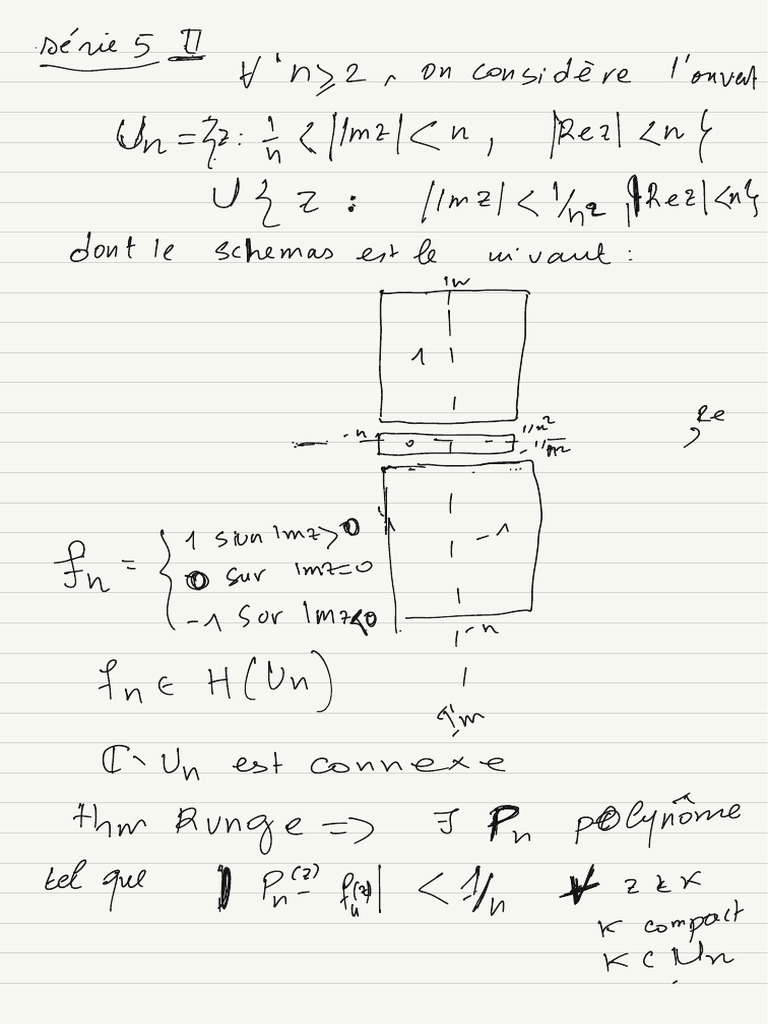 série 5 II
∀ n ≥ 2, on considère l'ouvert
Un = {z : 1/n < |Im z| < n, |Re z| < n}
U { z : |Im z| < 1/n², |Re z| < n}
dont le schemas est le uivant :
in
1
-n 0 1/n²
-1/n²
Re
-1
-n
Im
fn = { 1 si un Im z > 0
0 sur Im z = 0
-1 sur Im z < 0
fn ∈ H(Un)
ℂ \ Un est connexe
thm Runge => ∃ Pn polynôme
tel que | Pn(z) - fn(z) | < 1/n ∀ z ∈ K
K compact
K ⊂ Un